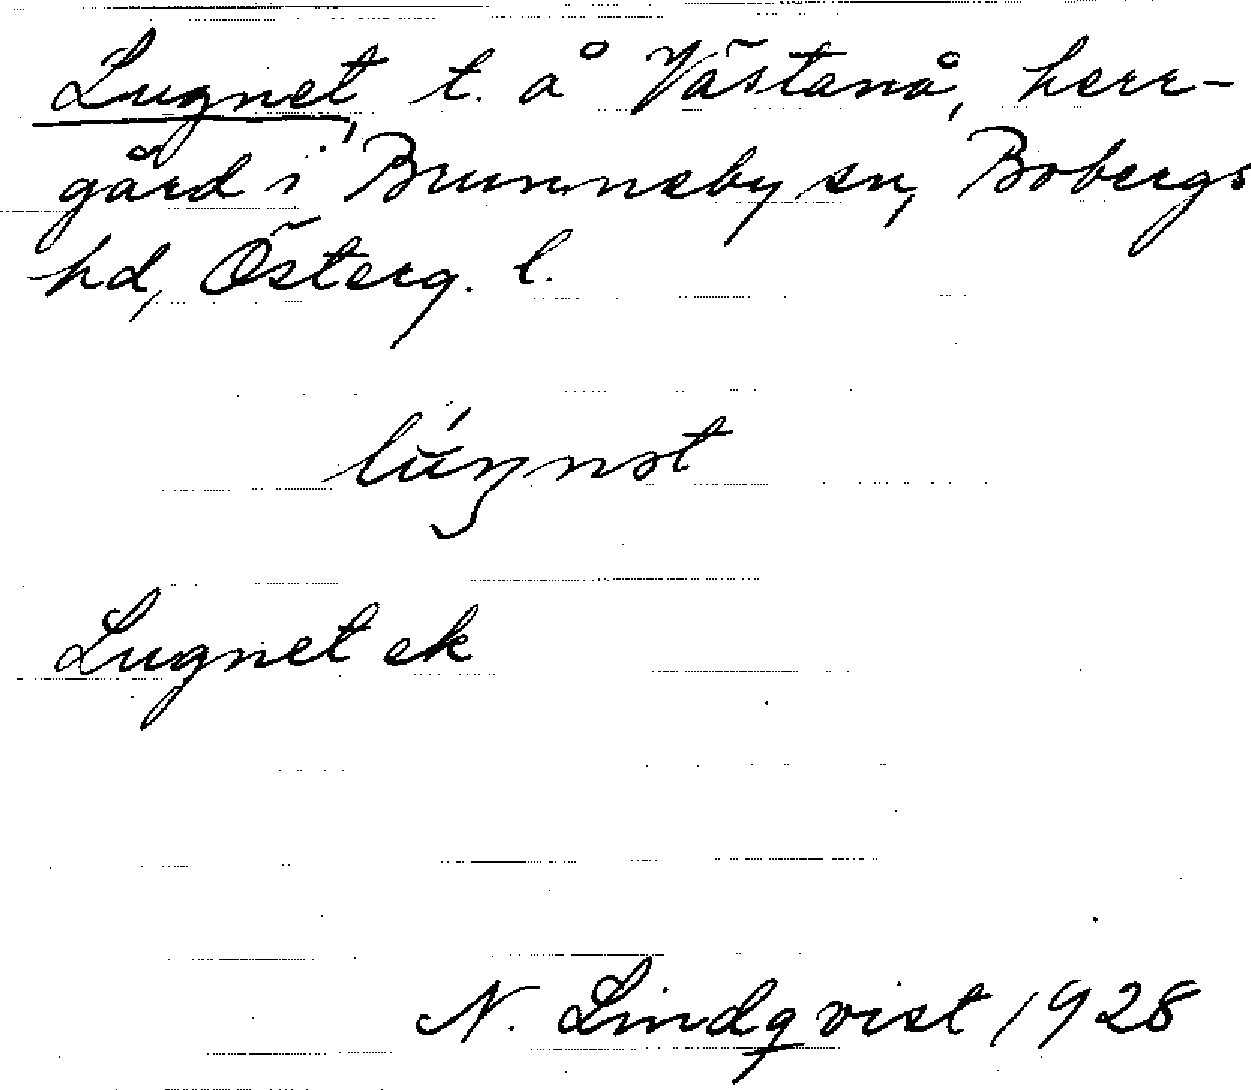 Lugnet, t. å Västanå, herr-
gård i Brunneby sn, Bobergs
hd, Österg. l.
Lugnet ek
N. Lindqvist 1928